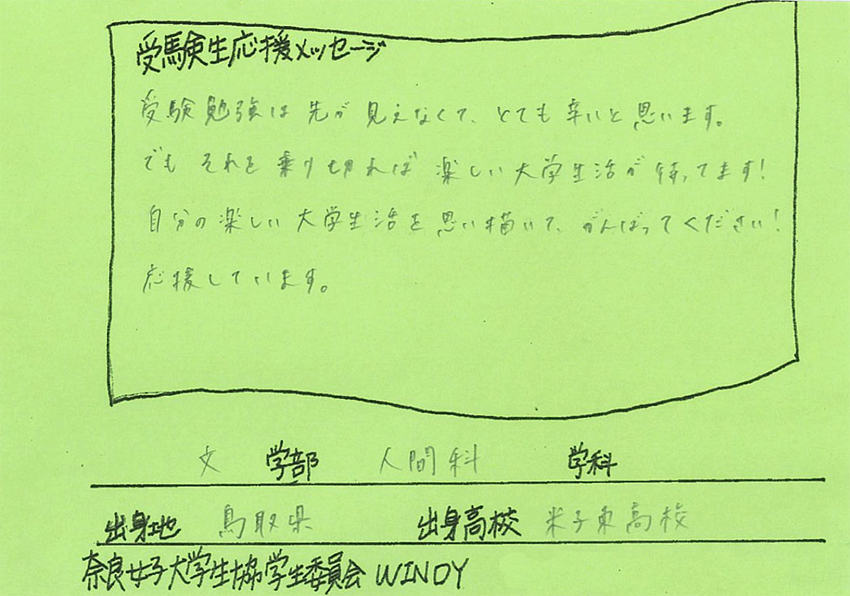 受験生応援メッセージ
受験勉強は先が見えなくて、とても辛いと思います。
でもそれを乗り切れば楽しい大学生活が待ってます!
自分の楽しい大学生活を思い描いて、がんばってください!
応援しています。
文 学部 人間科 学科
出身地 鳥取県 出身高校 米子東高校
奈良女子大学生協学生委員会 WINDY